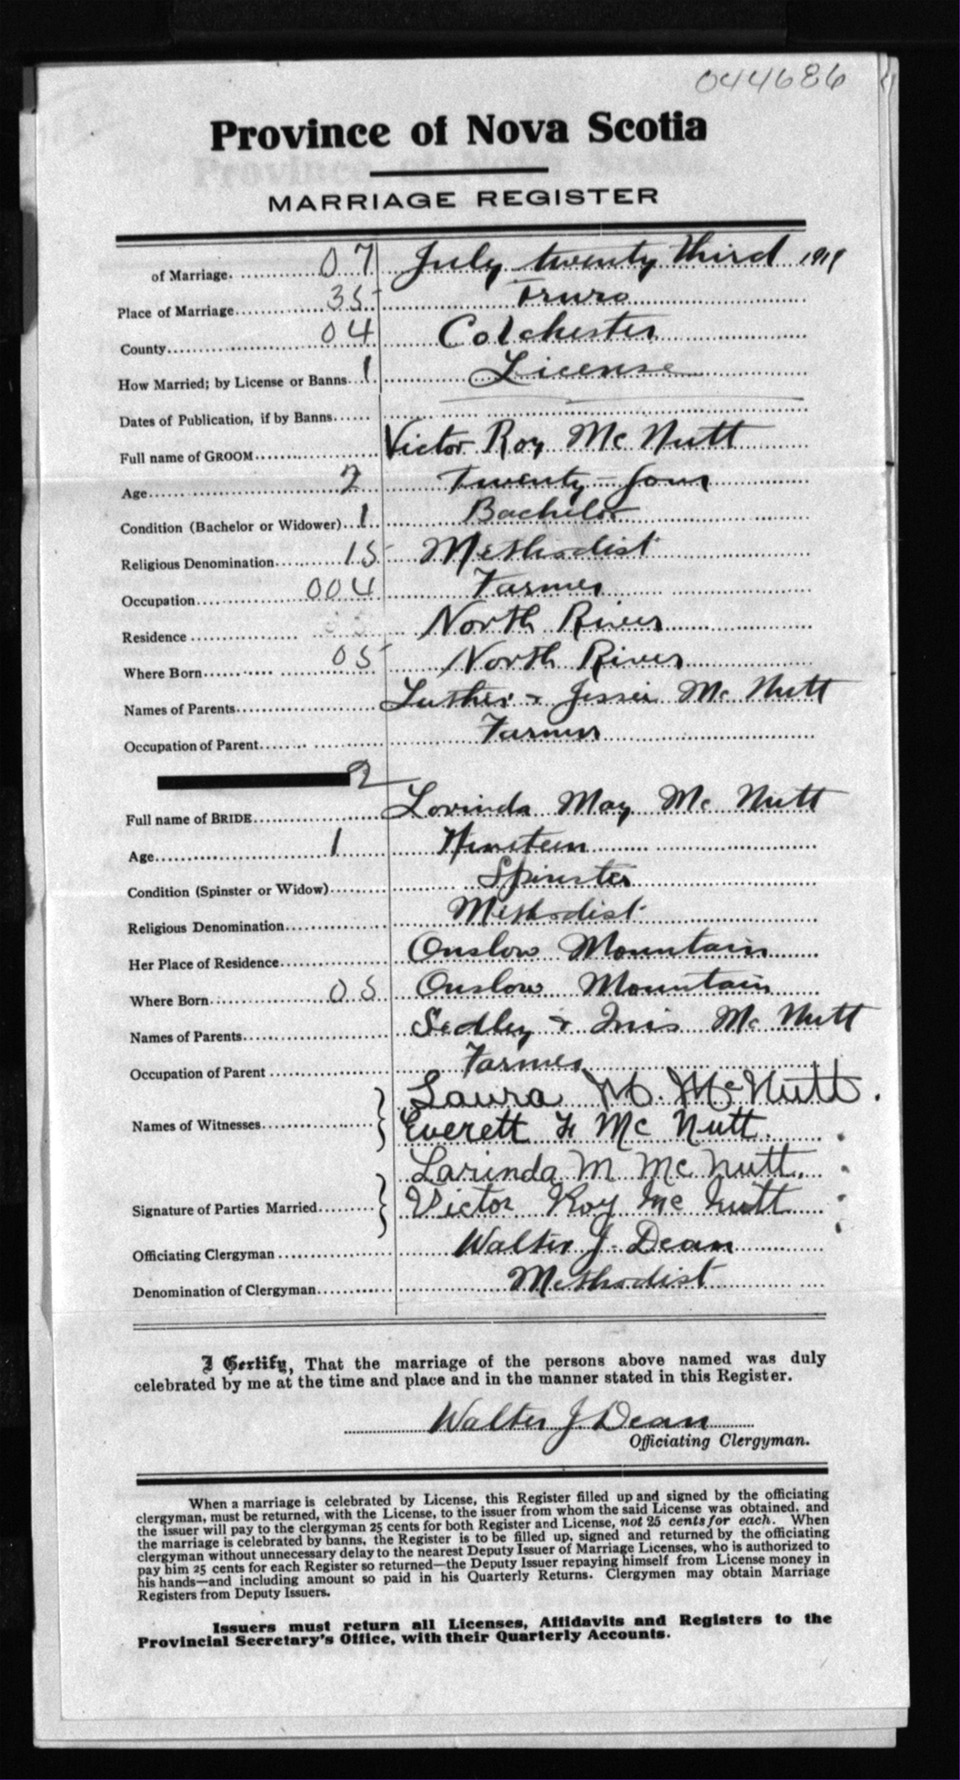 044686
Province of Nova Scotia
MARRIAGE REGISTER
of Marriage 07 July twenty third 1919
Place of Marriage 35 Truro
County 04 Colchester
How Married; by License or Banns 1 License
Dates of Publication, if by Banns
Full name of GROOM Victor Roy Mc Nutt
Age 2 Twenty-four
Condition (Bachelor or Widower) 1 Bachelor
Religious Denomination 15 Methodist
Occupation 004 Farmer
Residence North River
Where Born 05 North River
Names of Parents Luther & Jessie Mc Nutt
Occupation of Parent Farmer
2
Full name of BRIDE Lorinda May Mc Nutt
Age 1 Nineteen
Condition (Spinster or Widow) Spinster
Religious Denomination Methodist
Her Place of Residence Onslow Mountain
Where Born 05 Onslow Mountain
Names of Parents Sedley & Inis Mc Nutt
Occupation of Parent Farmer
Names of Witnesses Laura M. McNutt.
Everett F. Mc Nutt.
Signature of Parties Married Larinda M Mc Nutt.
Victor Roy Mc Nutt
Officiating Clergyman Walter J. Dean
Denomination of Clergyman Methodist
I Certify, That the marriage of the persons above named was duly
celebrated by me at the time and place and in the manner stated in this Register.
Walter J Dean
Officiating Clergyman.
When a marriage is celebrated by License, this Register filled up and signed by the officiating
clergyman, must be returned, with the License, to the issuer from whom the said License was obtained, and
the issuer will pay to the clergyman 25 cents for both Register and License, not 25 cents for each. When
the marriage is celebrated by banns, the Register is to be filled up, signed and returned by the officiating
clergyman without unnecessary delay to the nearest Deputy Issuer of Marriage Licenses, who is authorized to
pay him 25 cents for each Register so returned—the Deputy Issuer repaying himself from License money in
his hands—and including amount so paid in his Quarterly Returns. Clergymen may obtain Marriage
Registers from Deputy Issuers.
Issuers must return all Licenses, Affidavits and Registers to the
Provincial Secretary's Office, with their Quarterly Accounts.